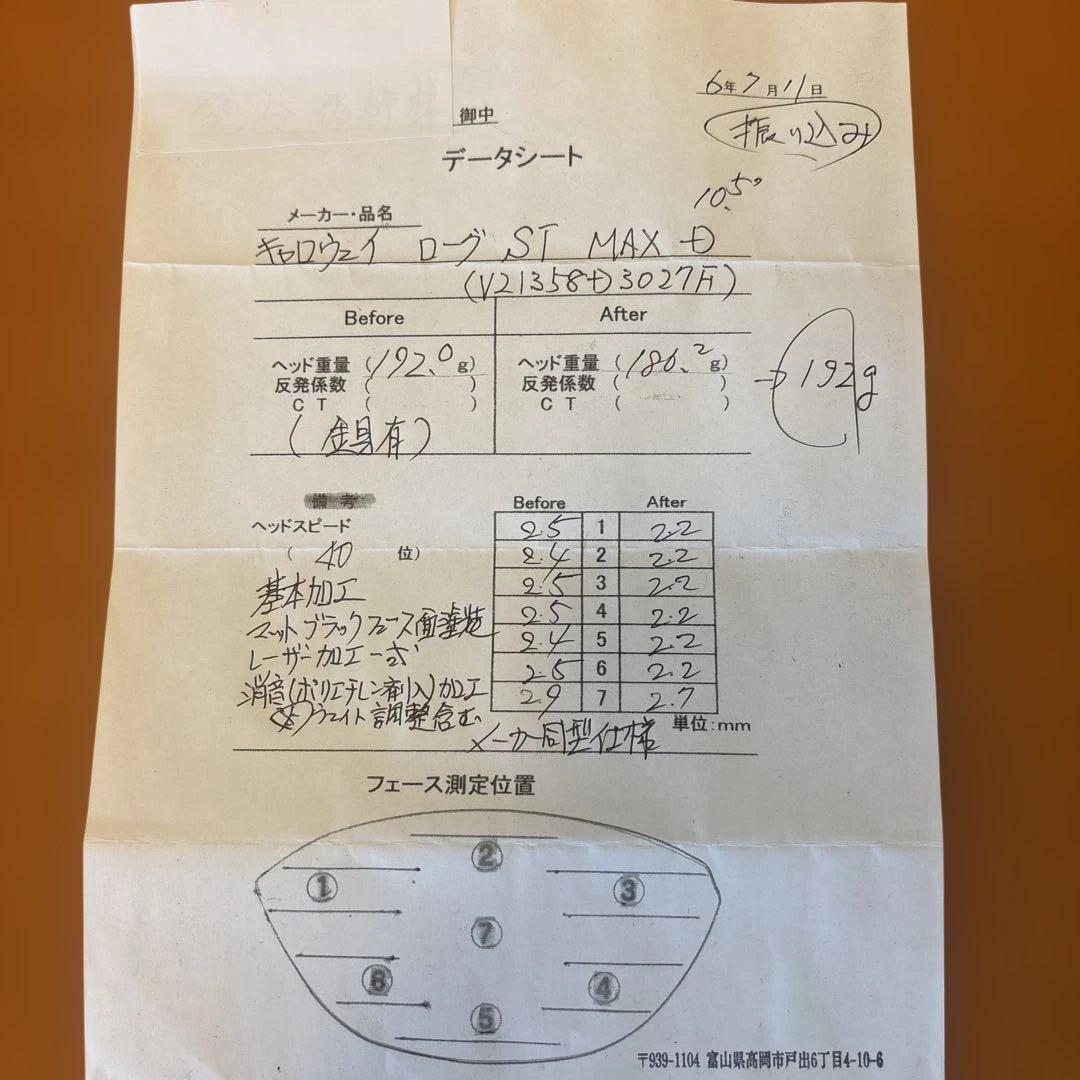 6年7月11日
御中
振り込み
データシート
10.5°
メーカー・品名
キャロウェイ ローグ ST MAX D
(V21358D3027F)
Before After
ヘッド重量 (192.0g) ヘッド重量 (186.2g)
反発係数 ( ) 反発係数 ( )
CT ( ) CT ( )
→192g
(鉛具有)
備考 Before After
ヘッドスピード
(40 位)
2.5 1 2.2
2.4 2 2.2
2.5 3 2.2
2.5 4 2.2
2.4 5 2.2
2.5 6 2.2
2.9 7 2.7
基本加工
マットブラックフェース面塗装
レーザー加工一式
消音(ポリエチレン剤入)加工
ウェイト調整含む
単位:mm
メーカー同型仕様
フェース測定位置
②
① ③
⑦
⑥ ④
⑤
〒939-1104 富山県高岡市戸出6丁目4-10-6